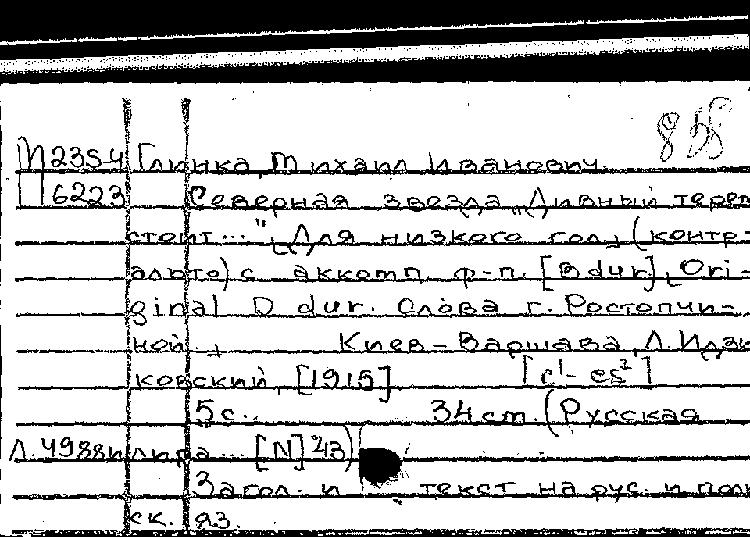 858
П 2354 Глинка, Михаил Иванович.
6223 Северная звезда „Дивный терем
стоит...", Для низкого гол, (контр-
альто) с аккомп. ф-п. [B dur], Ori-
ginal D dur. Слова г. Ростопчи-
ной. Киев-Варшава, Л. Идзи
ковский, [1915] [c¹- es²]
5 с. 34 cm. (Русская
Л. 4988и лира ... [N] 43)
Загол. и текст на рус. и поль
ск. яз.